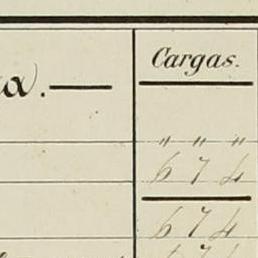 Cargas.
a.—
" " "
6 7 4
6 7 4